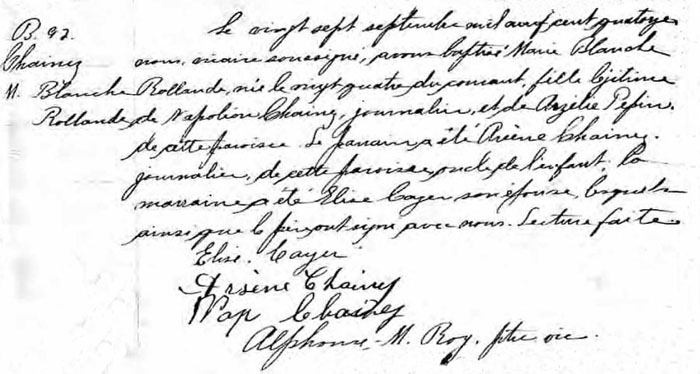 B. 92.
Chainey
M. Blanche
Rollande
Le vingt sept septembre mil neuf cent quatorze
nous, vicaire soussigné, avons baptisé Marie Blanche
Rollande, née le vingt quatre du courant, fille légitime
de Napoléon Chainey, journalier, et de Azélie Pepin,
de cette paroisse. Le parrain a été Arsène Chainey,
journalier, de cette paroisse, oncle de l'enfant, la
marraine a été Elise Cayer son épouse, lesquels
ainsi que le père ont signé avec nous. Lecture faite
Elise. Cayer
Arsène Chainey
Nap Chainey
Alphonse-M. Roy, ptre vic.